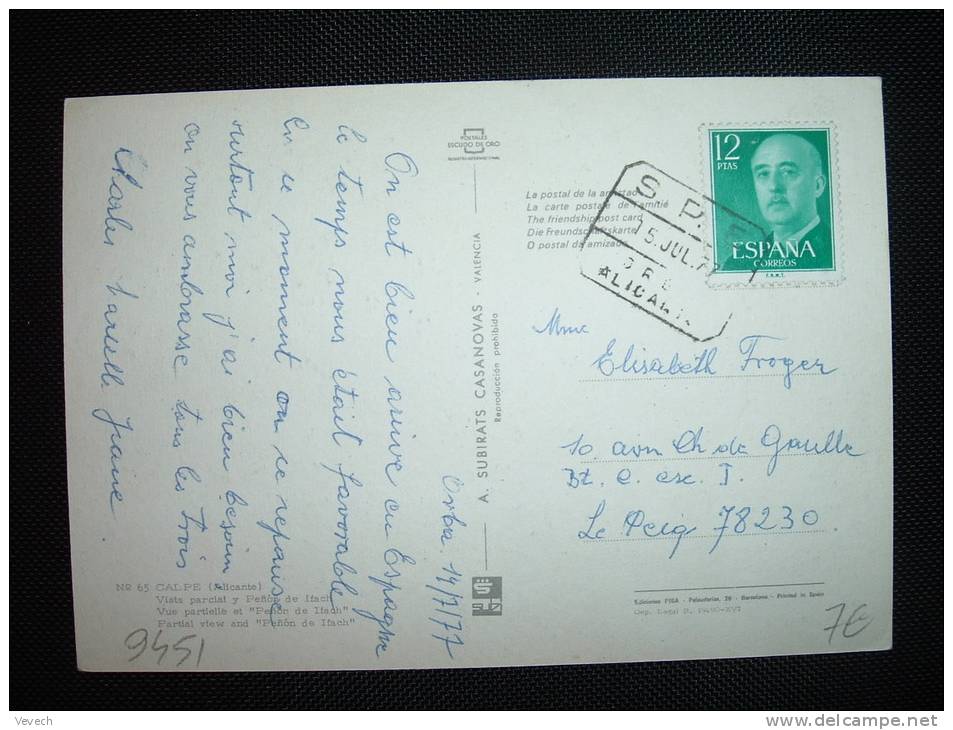 Orba. 14/7/77
On est bien arrivé en Espagne
le temps nous était favorable
En se moment on se repause
surtout moi j'ai bien besoin
on vous embrasse tous les trois
Charles Marielle Jeanne.
POSTALES
ESCUDO DE ORO
REGISTRO INTERNACIONAL
A. SUBIRATS CASANOVAS - VALENCIA
Reproducción prohibida
La postal de la amistad
La carte postale de l'amitié
The friendship post card
Die Freundschaftskarte
O postal da amizade
12
PTAS
ESPAÑA
CORREOS
F.N.M.T.
S. P. E
15. JUL. 77
ALICANTE
Mme
Elisabeth Froger
10 avn Ch de Gaulle
Bt. C. esc. I.
Le Pecq 78230.
Nº 65 CALPE (Alicante)
Vista parcial y Peñón de Ifach
Vue partielle et "Peñón de Ifach"
Partial view and "Peñón de Ifach"
9451
Ediciones FISA - Palaudarias, 26 - Barcelona - Printed in Spain
Dep. Legal B.
7€
Vevech
www.delcampe.net